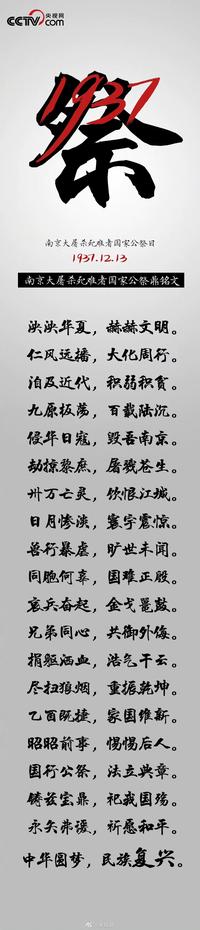 CCTV 央视网
com
1937
祭
南京大屠杀死难者国家公祭日
1937.12.13
南京大屠杀死难者国家公祭鼎铭文
泱泱华夏，赫赫文明。
仁风远播，大化周行。
洎及近代，积弱积贫。
九原板荡，百载陆沉。
侵华日寇，毁吾南京。
劫掠黎庶，屠戮苍生。
卅万亡灵，饮恨江城。
日月惨淡，寰宇震惊。
兽行暴虐，旷世未闻。
同胞何辜，国难正殷。
哀兵奋起，金戈鼍鼓。
兄弟同心，共御外侮。
捐躯洒血，浩气干云。
尽扫狼烟，重振乾坤。
乙酉既捷，家国维新。
昭昭前事，惕惕后人。
国行公祭，法立典章。
铸兹宝鼎，祀我国殇。
永矢弗谖，祈愿和平。
中华圆梦，民族复兴。